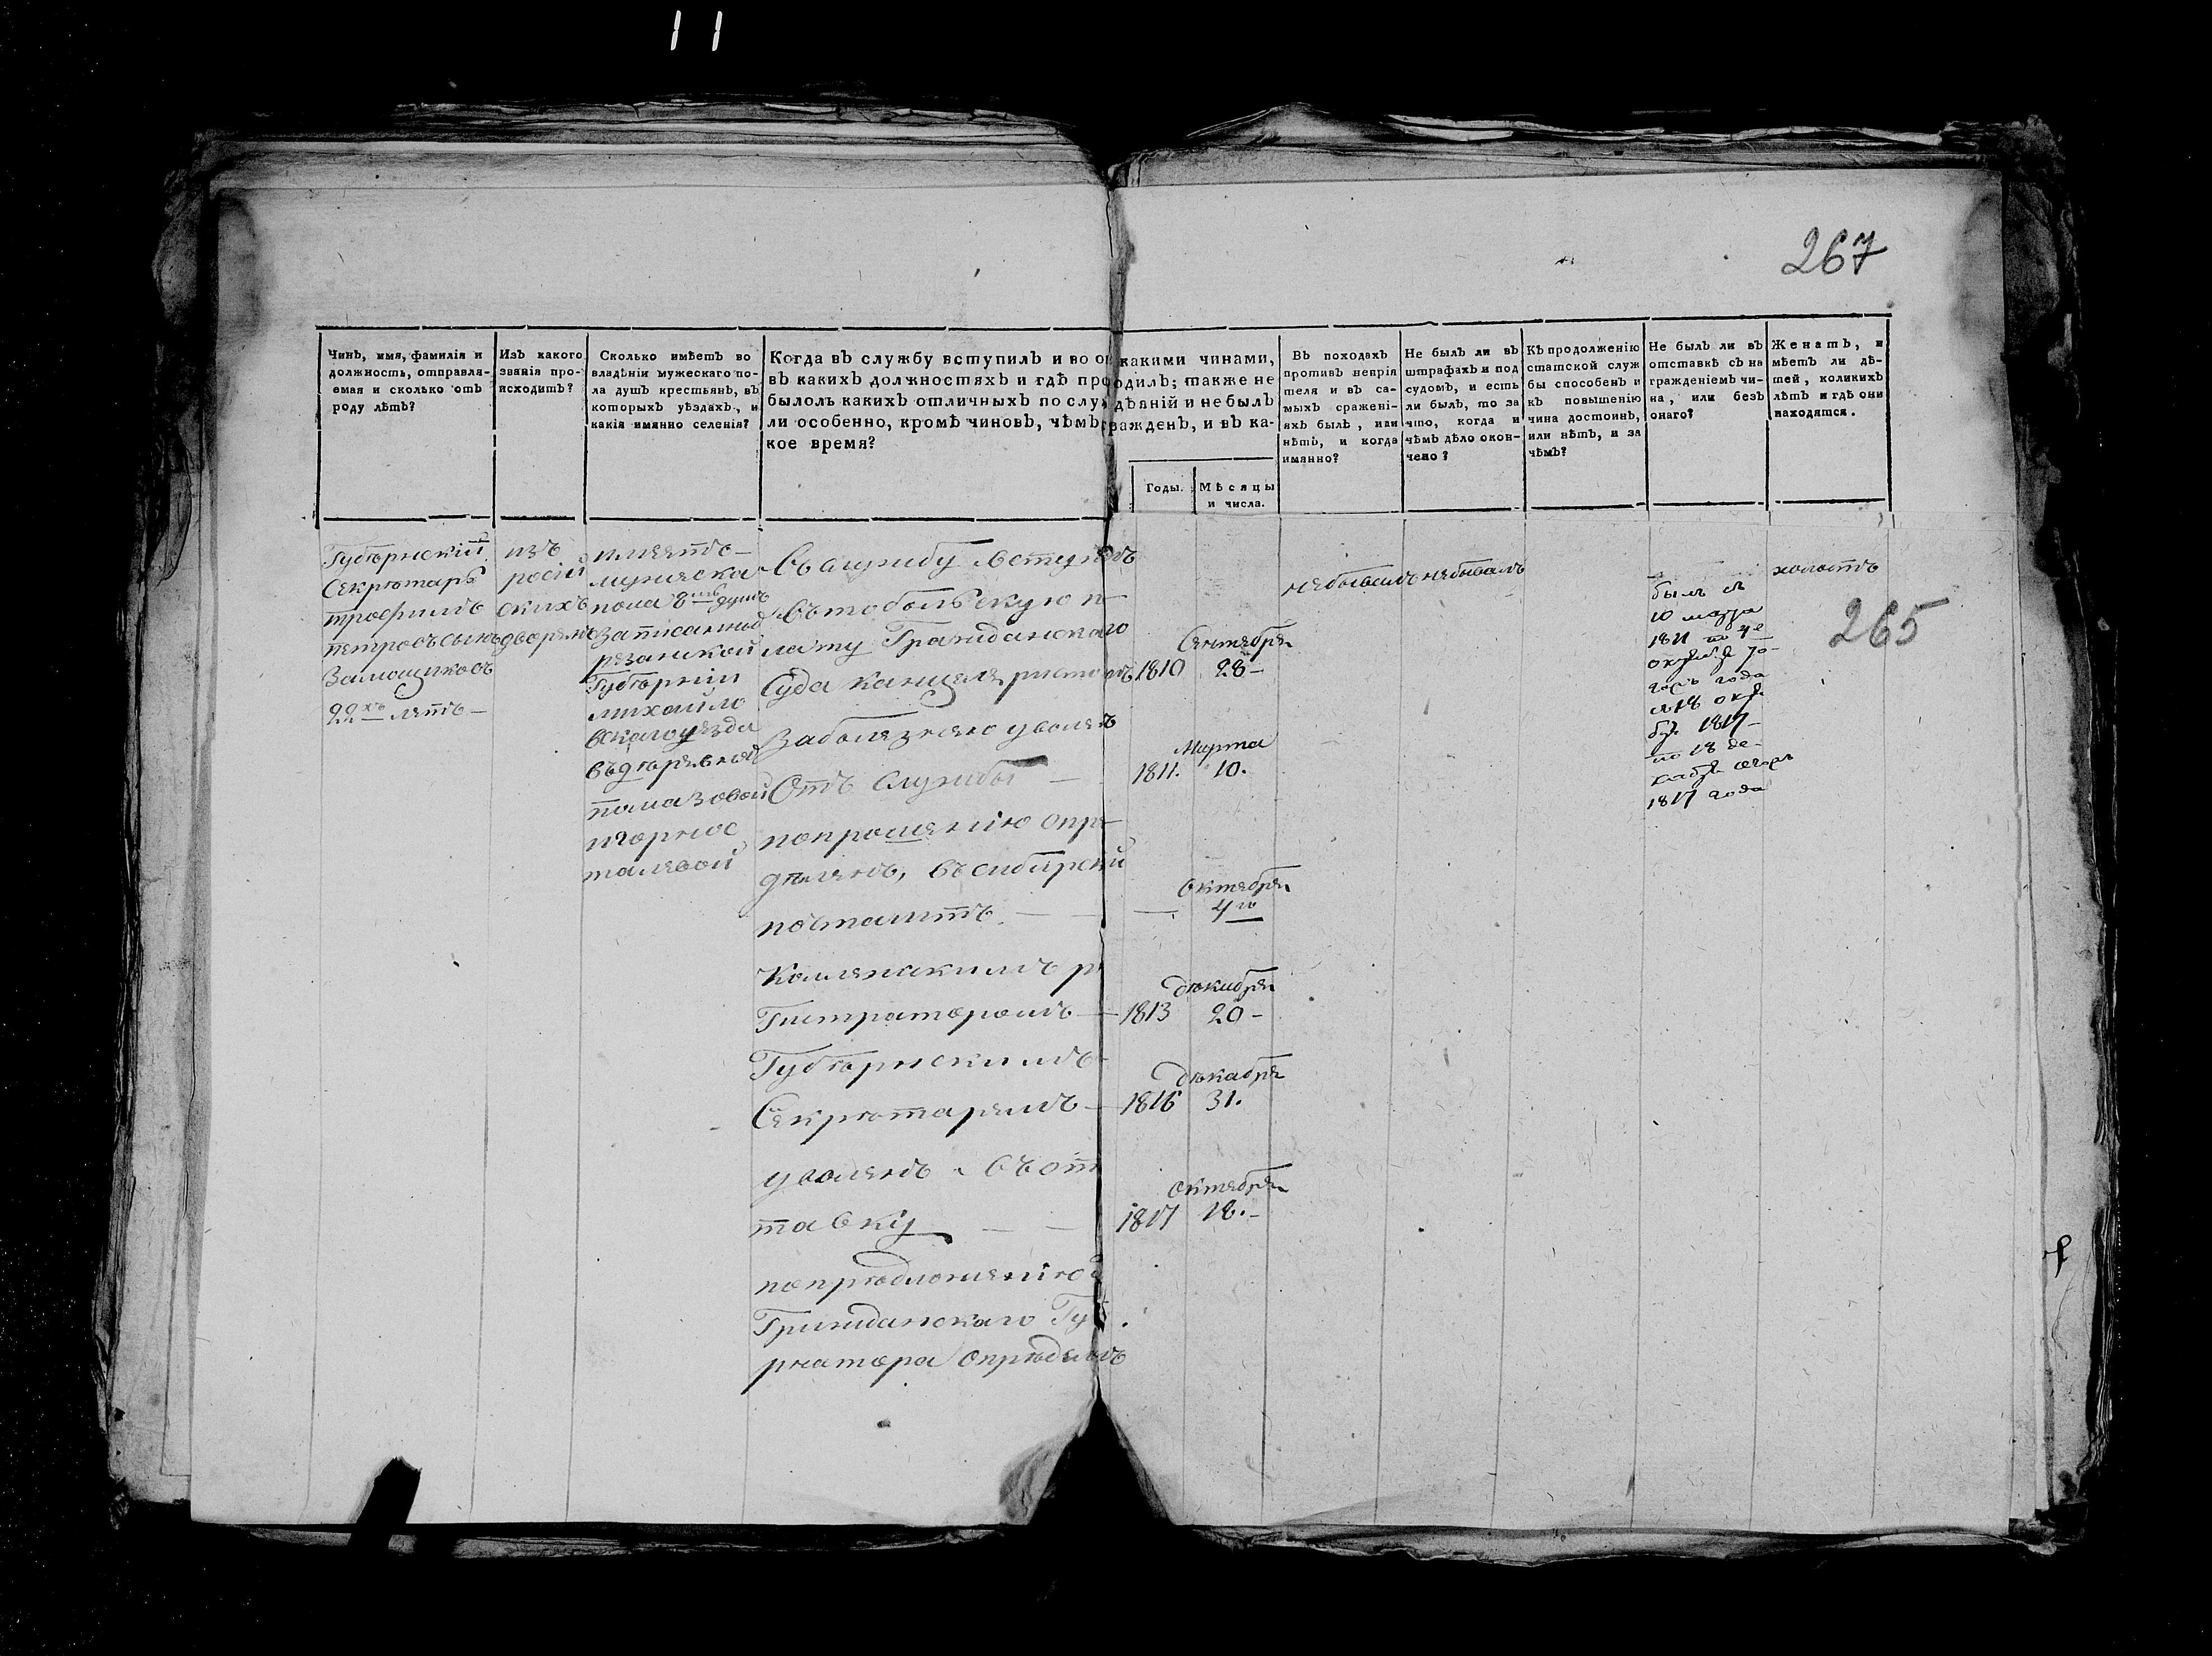 11
267
Чинъ, имя, фамилія и
должность, отправля-
емая и сколько отъ
роду лѣтъ?
Изъ какого
званія про-
исходитъ?
Сколько имѣетъ во
владѣніи мужескаго по-
ла душъ крестьянъ, въ
которыхъ уѣздахъ, и
какія имянно селенія?
Когда въ службу вступилъ и во о какими чинами,
въ какихъ должностяхъ и гдѣ про одилъ; также не
былолъ какихъ отличныхъ по слу дѣяній и не былъ
ли особенно, кромѣ чиновъ, чѣмъ ражденъ, и въ ка-
кое время?
Годы.
Мѣсяцы
и числа.
Въ походахъ
противъ непрія
теля и въ са-
мыхъ сражені-
яхъ былъ, или
нѣтъ, и когда
имянно?
Не былъ ли въ
штрафахъ и под
судомъ, и есть
ли былъ, то за
что, когда и
чѣмъ дѣло окон-
чено?
Къ продолженію
статской служ
бы способенъ и
къ повышенію
чина достоинъ,
или нѣтъ, и за
чѣмъ?
Не былъ ли въ
отставкѣ съ на
гражденіемъ чи-
на, или безъ
онаго?
Женатъ, и
мѣетъ ли дѣ-
тей, коликихъ
лѣтъ и гдѣ они
находятся.
Губернскій
Секретарь
трофимъ
петровъ сынъ
Замощиковъ
22хъ летъ
изъ
росій
скихъ
дворянъ
имеетъ
мужеска
пола 8 душъ
записанныя
резанской
Губерніи
михайло
вскаго уезда
въ деревняхъ
Въ службу вступилъ
въ тобольскую п
лату Гражданскаго
Суда канцеляристомъ
1810
Сентября
28
За болезнею уволенъ
Отъ службы
1811.
Марта
10.
по прошенію опре
деленъ, въ сибирскій
почтамтъ
Октября
4го
Коллежскимъ ре
Гистраторомъ
1813
декабря
20
Губернскимъ
Секретаремъ
1816
декабря
31.
уволенъ въ от
тавку
1817
Октября
18.
по предложенію
Гражданскаго Губ
рнатора определенъ
не бывалъ
не бывалъ
былъ съ
10 марта
1811 по 4е
года
съ 18 октя
бря 1817
по 18 де-
кабря
1817 года
холостъ
265